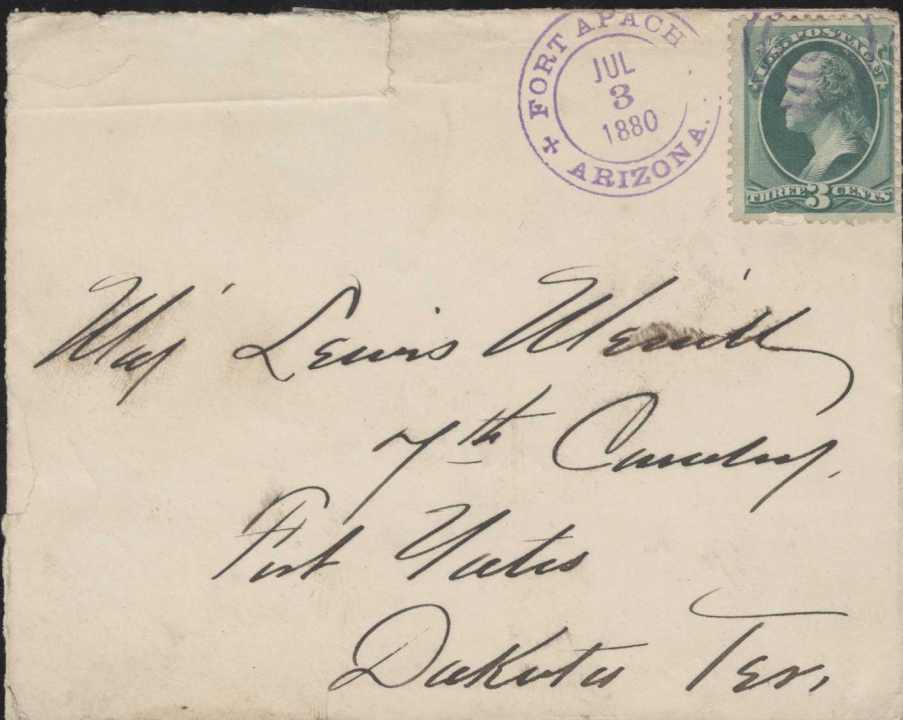 FORT APACH
JUL
3
1880
ARIZONA.
U.S. POSTAGE
THREE 3 CENTS
Maj Lewis Merrill
7th Cavalry.
Fort Yates
Dakota Ter.